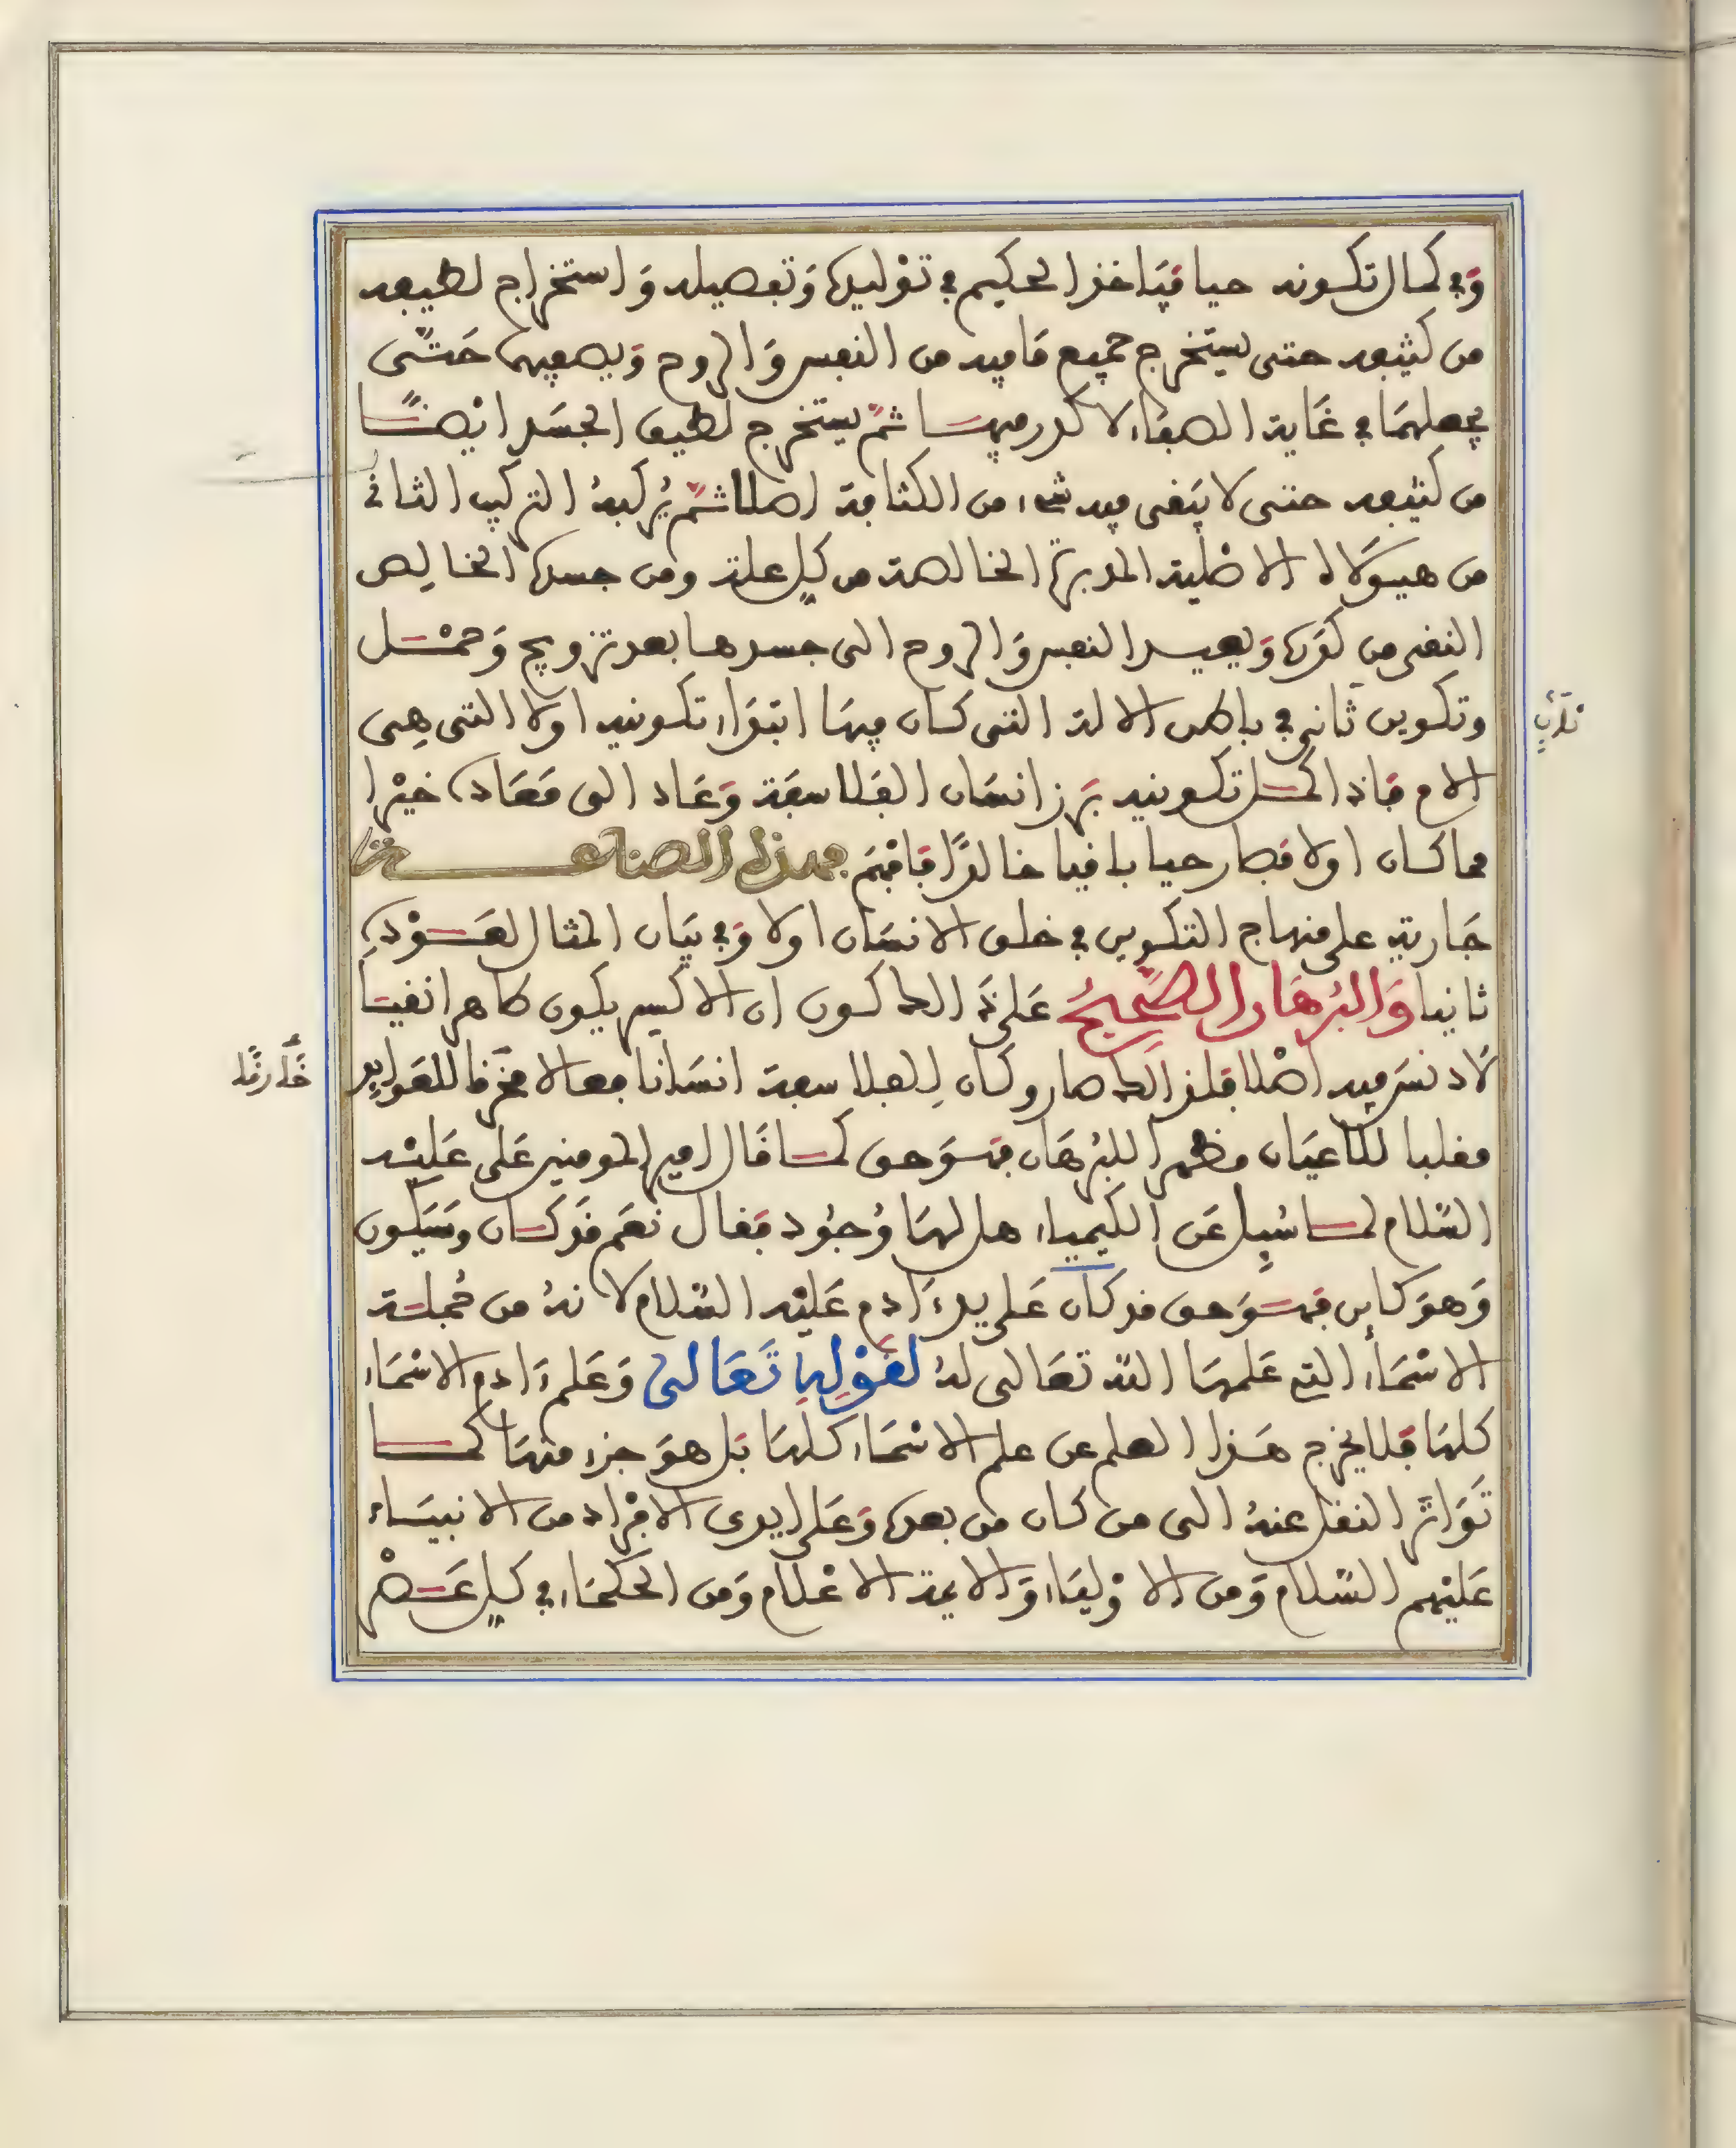 وَفي كمال تكونه حيا فيَاخذ الحكيم في توْليدها وَتفصيله وَاستخراج لطيفه
من كثيفه حتى يستخرج جميع مَا فيه من النفس وَالروح وَيصفيهما حَتّى
يجعلهمَا في غَاية الصفَاء لا كدر فيهما ثمّ يستخرج لطيف الجسَد ايْضًا
من كثيفه حتى لا يَبقى فيه شيء من الكثافة اصلا ثمّ يُركبهُ التركيب الثاني
من هيوَلاه الاصْلية المدبرة الخالصة من كلِ علة ومن جسده الخالِص
النقي من كدَره وَيعيد النفس وَالروح الى جسدها بعد تزويج وَحمْل
وتكوين ثَاني في باطن الالة التي كان فيهَا ابتدَاء تكوينه اولا التي هِى
الام فَاذا اكمل تكوينه بَرز انسَان الفَلاسفَة وَعَاد الى مَعَاده خيْرا
مما كان اولا فصار حيا باقيا خالدًا فَافهَم فهذه الصناعة
جَارية على منهاج التكوين في خلق الانسَان اولا وَفي بيَان المثال العَوْدِ
ثانيا وَالبُرهَان الصَّحِيحُ عَلى ذَلك كون ان الاكسير يكون طاهرا نقيا
لَا دنس فيه اصْلا فلذلك صار وكان لِلفلاسفة انسَانا فعالا مخرقا للعوايد
مقلبا للاعيَان مظهرا للبُرهَان فهوَ حق كما قَال امير المومنين عَلى عَليْه
السَّلام لما سُيِل عَن الكيمياء هل لهَا وُجُود فقال نعَم قَد كان وسَيَكون
وَهوَ كاين فهوَ حق قد كان عَلى يديْ ءَادم عَليْه السَّلام لانهُ من جُملة
الاسْمَاء التي عَلمهَا اللّه تعَالى لهُ لقوْلِهِ تَعَالى وَعَلم ءَادم الاسْمَاء
كلهَا فَلا يخرج هَذا العلم عن علم الاسْمَاء كلهَا بَل هوَ جزء منهَا كما
تَوَاترَ النقل عنهُ الى من كان من بعده وَعَلى ايدى الافرَاد من الانبيَاء
عَليْهم السَّلام وَمن الاوْليَاء وَالايمة الاعْلام وَمن الحكمَاء في كلِ عَصْر